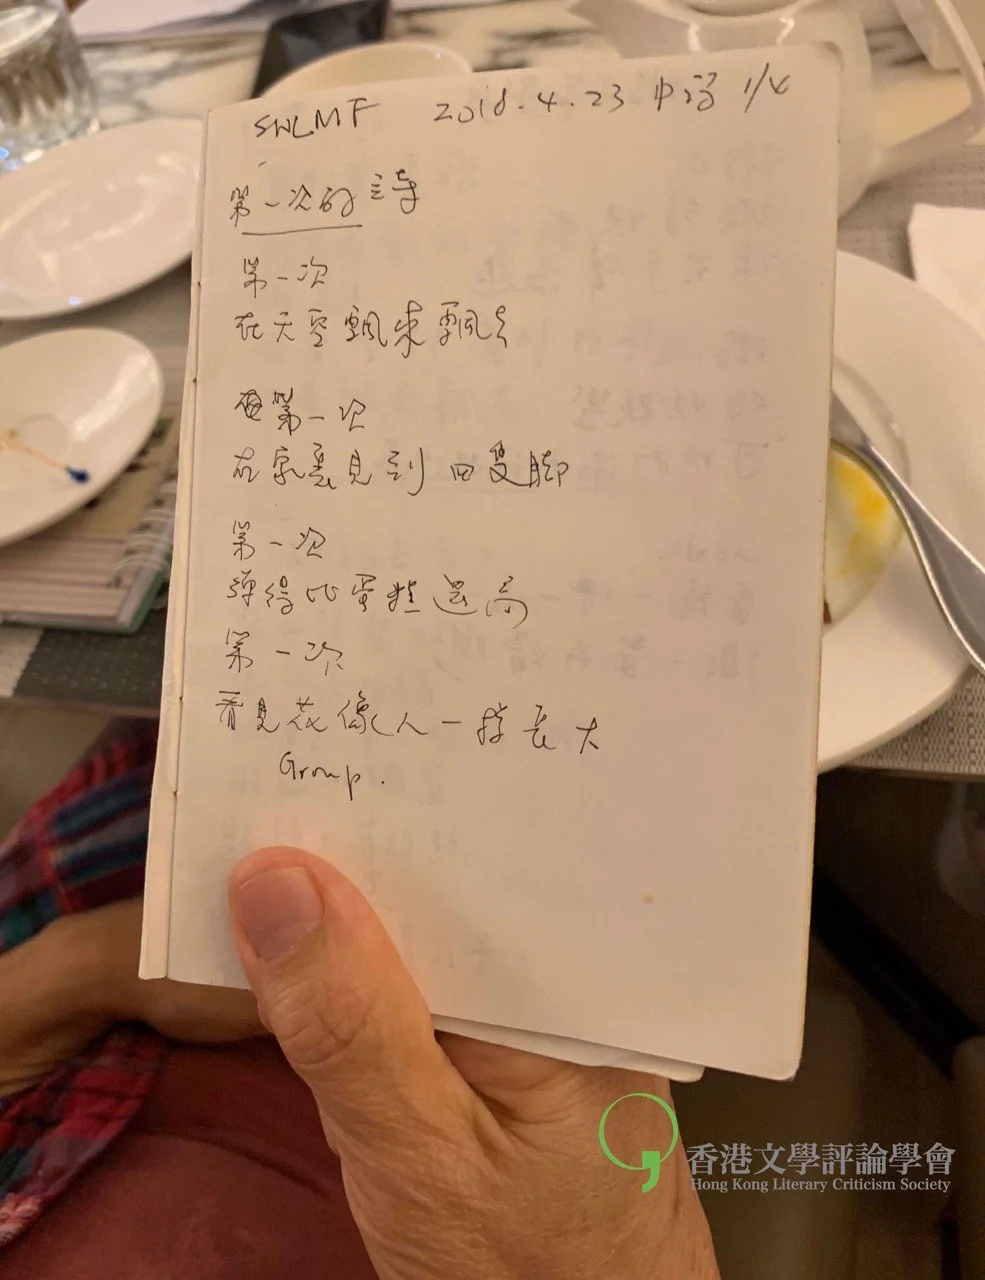 SWLMF 2018.4.23 中詩 1/4
第一次的詩
第一次
在天空飄來飄去
第一次
在家裏見到四隻腳
第一次
彈得比蛋糕還高
第一次
看見花像人一樣長大
Group.
香港文學評論學會
Hong Kong Literary Criticism Society